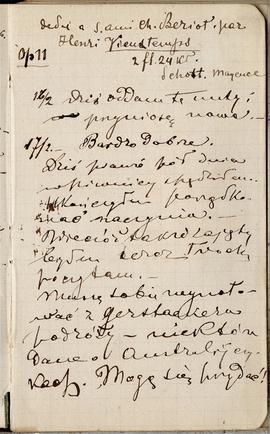 dedié a s. ami Ch. Beriot. par
Henri Vieuxtemps
Op 11
2 fl. 24 kr.
Schott. Mayence
16/2 Dziś oddam te nuty i
przyniosę nowe. —
17/2. — Bardzo dobre.
Dziś prawie pół dnia
w piwnicy
naczynia. —
Wieczór także zajęty
będę teraz trochę
poczytam. —
Muszę sobie wynoto-
wać z Gerstaeckera
podróży — niektóre
dane o Australijczy-
kach. Mogą się przydać!